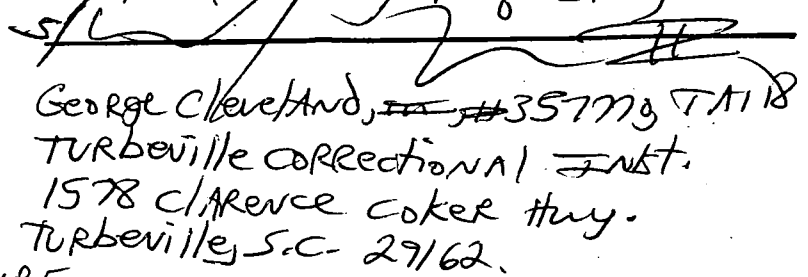 S/
George Cleveland, III, #357773 TA118
Turbeville Correctional Inst.
1578 Clarence Coker Hwy.
Turbeville, S.C. 29162.